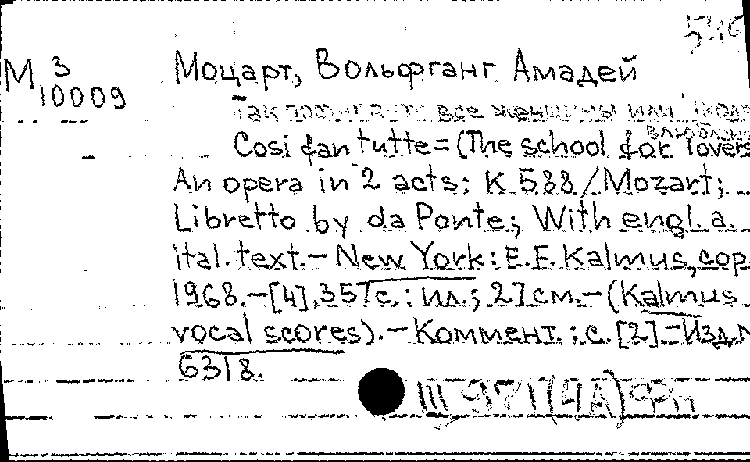 М 3
10009
Моцарт, Вольфганг Амадей
Так поступают все женщины или
Cosi fan tutte = (The school for lovers
An opera in 2 acts: K 588 / Mozart;
Libretto by da Ponte; With engl. a.
ital. text. – New York: E.F. Kalmus, cop.
1968. – [4], 357 с.: ил.; 27 см. – (Kalmus
vocal scores). – Коммент.: с. [2] – Изд. N
6318.